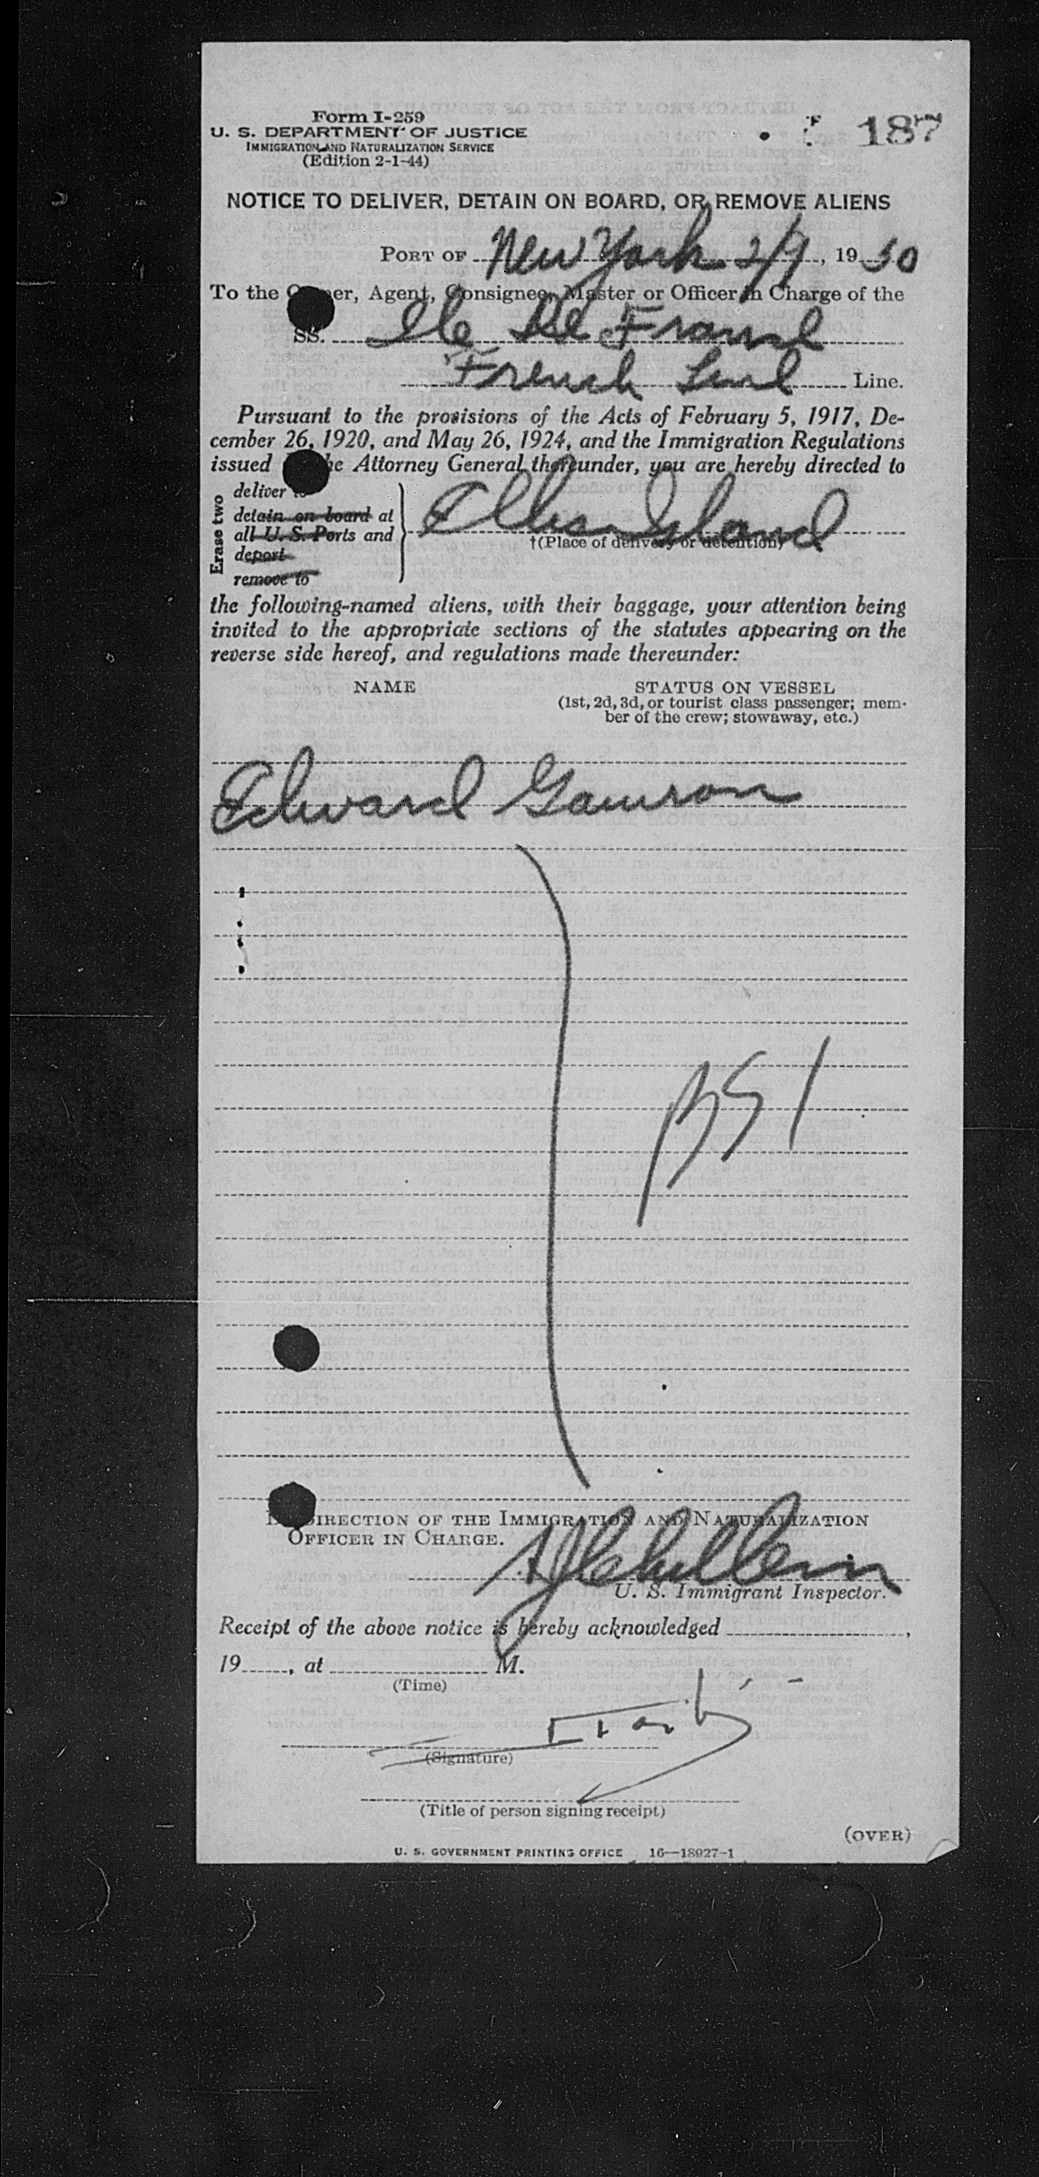 187
Form I-259
U. S. DEPARTMENT OF JUSTICE
IMMIGRATION AND NATURALIZATION SERVICE
(Edition 2-1-44)
NOTICE TO DELIVER, DETAIN ON BOARD, OR REMOVE ALIENS
PORT OF New York 2/9, 1950
To the Owner, Agent, Consignee, Master or Officer in Charge of the
SS. Ile De France
French Line Line.
Pursuant to the provisions of the Acts of February 5, 1917, De-
cember 26, 1920, and May 26, 1924, and the Immigration Regulations
issued the Attorney General thereunder, you are hereby directed to
Erase two
deliver to
detain on board at
all U. S. Ports and
deport
remove to
Ellis Island
†(Place of delivery or detention)
the following-named aliens, with their baggage, your attention being
invited to the appropriate sections of the statutes appearing on the
reverse side hereof, and regulations made thereunder:
NAME STATUS ON VESSEL
(1st, 2d, 3d, or tourist class passenger; mem-
ber of the crew; stowaway, etc.)
Edward Gawron
BSI
DIRECTION OF THE IMMIGRATION AND NATURALIZATION
OFFICER IN CHARGE.
U. S. Immigrant Inspector.
Receipt of the above notice is hereby acknowledged ,
19 , at M.
(Time)
(Signature)
(Title of person signing receipt)
(OVER)
U. S. GOVERNMENT PRINTING OFFICE 16—18927-1